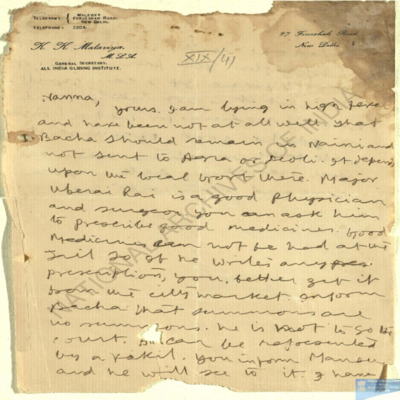 TELEGRAMS: MALAVIYA FEROZSHAH ROAD NEW DELHI.
TELEPHONE:
K. K. Malaviya,
M.L.A.
GENERAL SECRETARY,
ALL INDIA GLIDING INSTITUTE.
27 Ferozshah Road
New Delhi
XIX/41
yours. I am lying in high fever
and have been not at all well that
Bacha should remain in Naini and
not sent to Agra or Deoli. It depends
upon the local Govt there. Major
Uberai Rai is a good physician
and surgeon you can ask him
to prescribe good medicines. Good
Medicines can not be had at the
Jail so if he writes any
prescription, you better get it
from the city market. Inform
Bacha that summons are
no summons. He is not to go to
court. can be represented
by a vakil. You inform
and he will see to it. I have
NATIONAL ARCHIVES OF INDIA